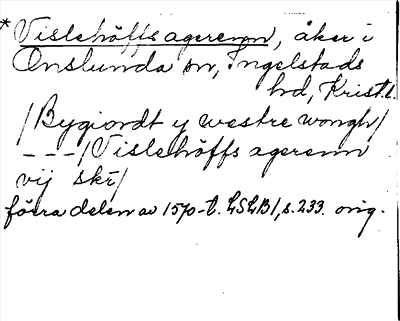 * Vislehöffs agerenn, åker i
Onslunda sn, Ingelstads
hd, Krist.l.
/Bygiordt y westre wongh/
---/Vislehöffs agerenn
vij skr/
förra delen av 1570-t. LSLB1, s. 233. orig.